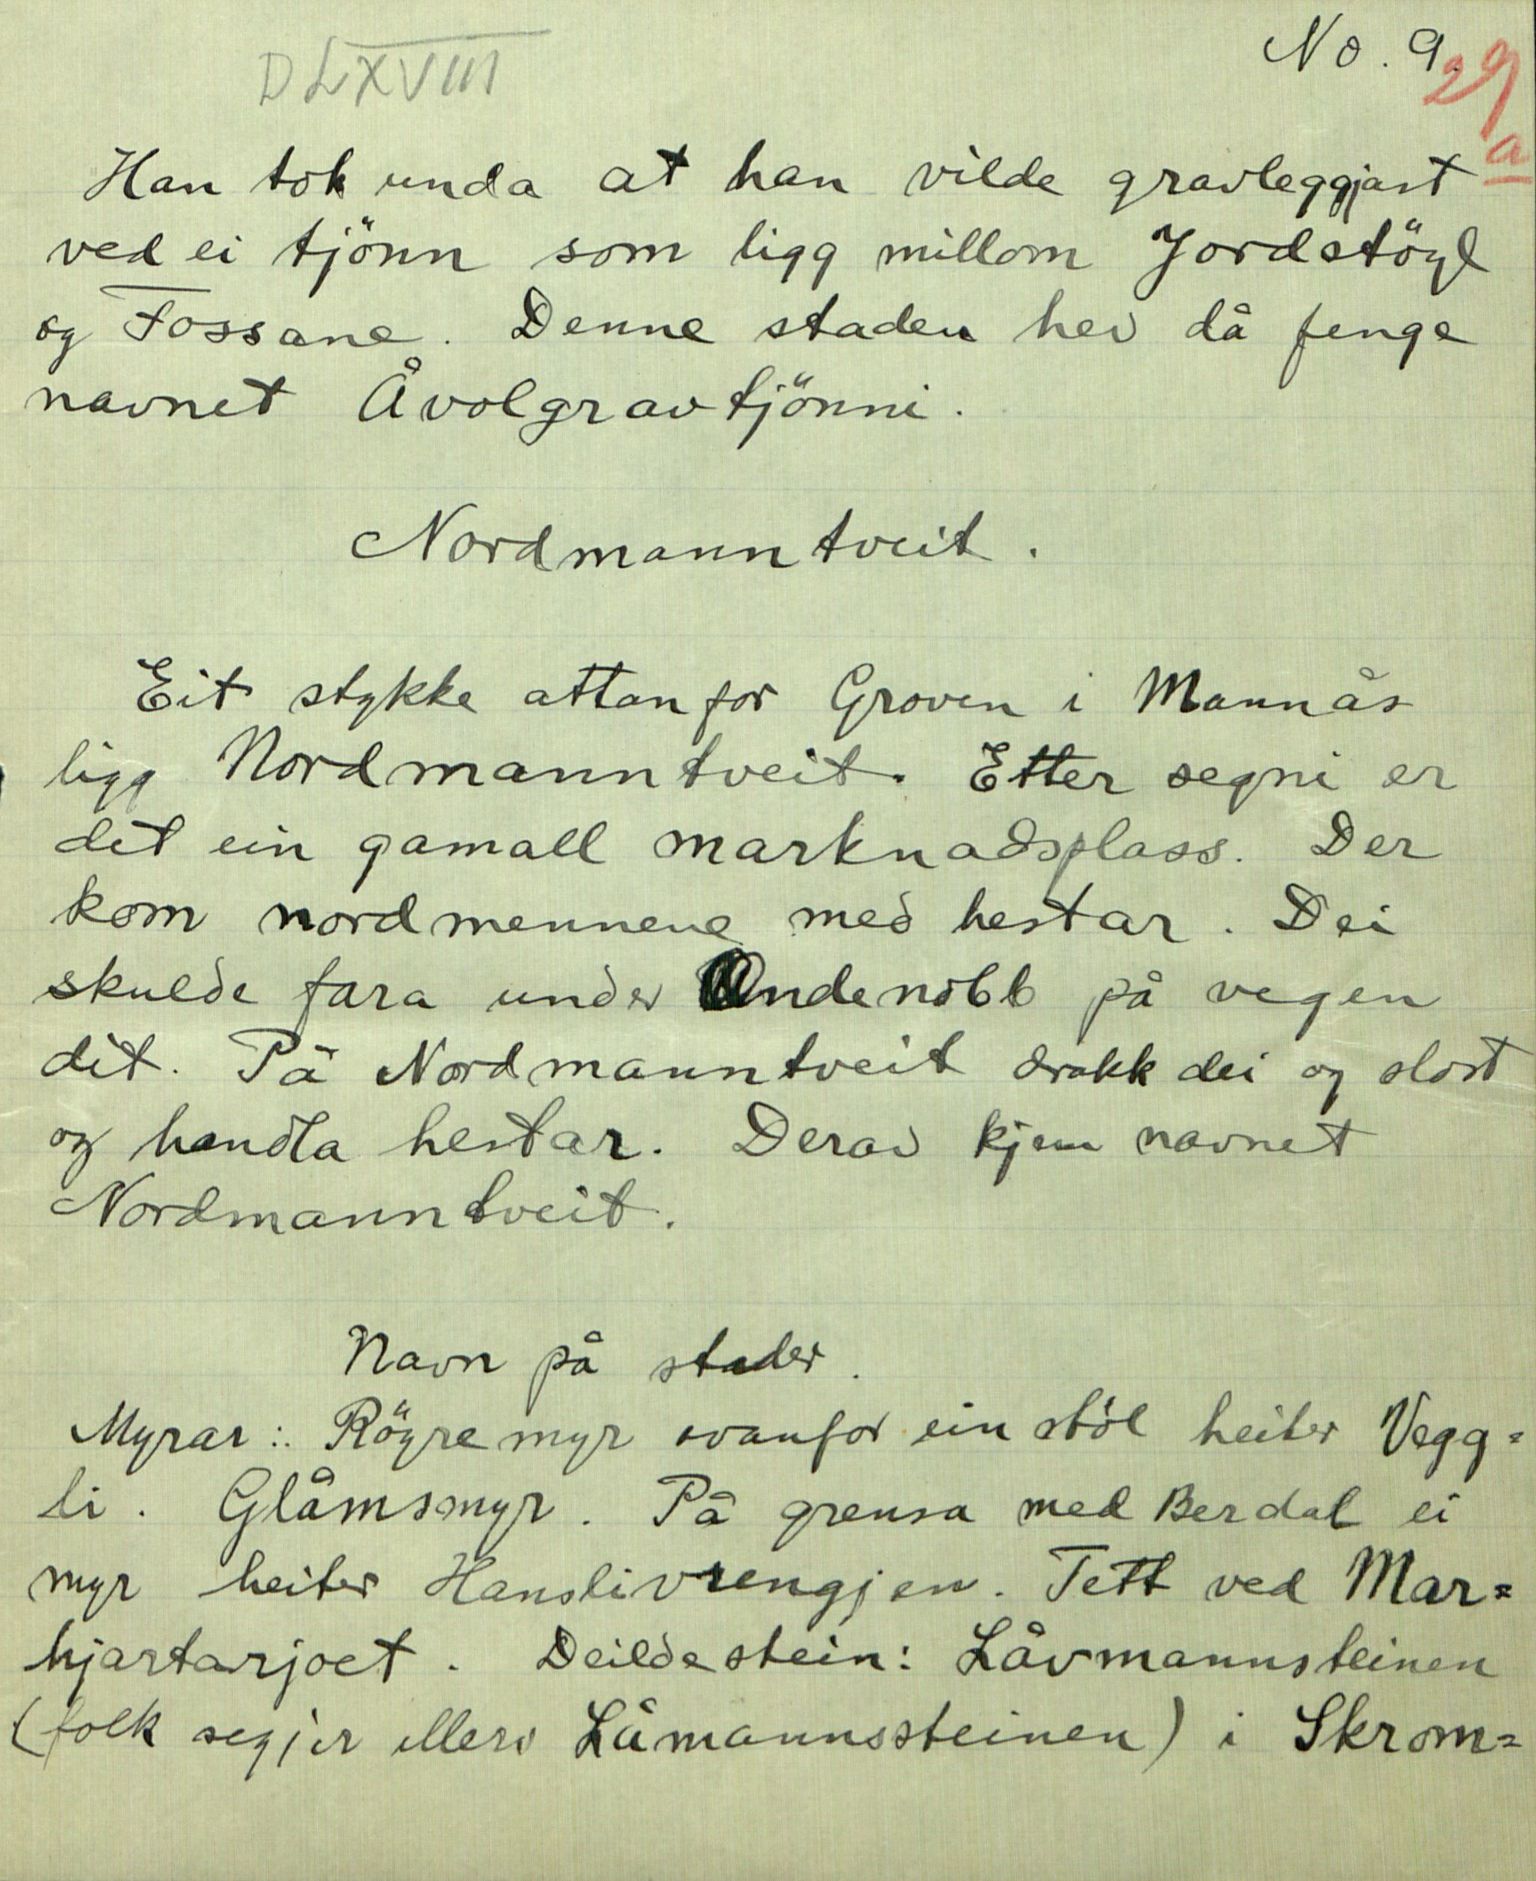 DLXVIII
No. 9.
29
a
Han tok unda at han vilde gravleggjast
ved ei tjönn som ligg millom Jordstöyl
og Fossane. Denne staden hev då fenge
navnet Åvolgravtjönni.
Nordmanntveit.
Eit stykke attanfor Groven i Mannås
ligg Nordmanntveit. Etter segni er
det ein gamall marknadsplass. Der
kom nordmennene med hestar. Dei
skulde fara under Andenibb på vegen
dit. På Nordmanntveit drakk dei og slost
og handla hestar. Derav kjem navnet
Nordmanntveit.
Navn på stader.
Myrar: Röyremyr ovanfor ein stöl heiter Vegg=
li. Glåmsmyr. På grensa med Berdal ei
myr heiter Hanslivrengjen. Tett ved Mar=
hjartarjoet. Deildestein: Låvmannsteinen
(folk segjer ellers Låmannssteinen) i Skrom=